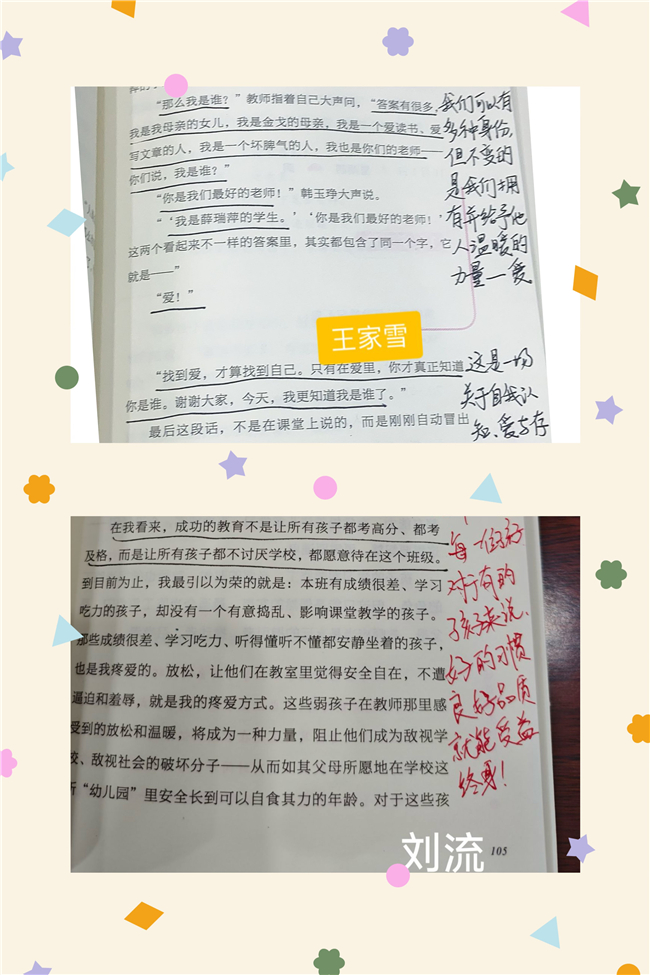 “那么我是谁？”教师指着自己大声问，“答案有很多，
我是我母亲的女儿，我是金戈的母亲，我是一个爱读书、爱
写文章的人，我是一个坏脾气的人，我也是你们的老师——
你们说，我是谁？”
“你是我们最好的老师！”韩玉琤大声说。
“‘我是薛瑞萍的学生。’‘你是我们最好的老师！’
这两个看起来不一样的答案里，其实都包含了同一个字，它
就是——”
“爱！”
我们可以有
多种身份，
但不变的
是我们拥
有并给予他
人温暖的
力量—爱
王家雪
“找到爱，才算找到自己。只有在爱里，你才真正知道
你是谁。谢谢大家，今天，我更知道我是谁了。”
最后这段话，不是在课堂上说的，而是刚刚自动冒出
这是一场
关于自我认
知、爱与存
在我看来，成功的教育不是让所有孩子都考高分、都考
及格，而是让所有孩子都不讨厌学校，都愿意待在这个班级。
到目前为止，我最引以为荣的就是：本班有成绩很差、学习
吃力的孩子，却没有一个有意捣乱、影响课堂教学的孩子。
那些成绩很差、学习吃力、听得懂听不懂都安静坐着的孩子，
也是我疼爱的。放松，让他们在教室里觉得安全自在，不遭
逼迫和羞辱，就是我的疼爱方式。这些弱孩子在教师那里感
受到的放松和温暖，将成为一种力量，阻止他们成为敌视学
校、敌视社会的破坏分子——从而如其父母所愿地在学校这
所“幼儿园”里安全长到可以自食其力的年龄。对于这些孩
每一
对于有的
孩子来说，
好的习惯
良好品质
就能受益
终身！
刘流
105